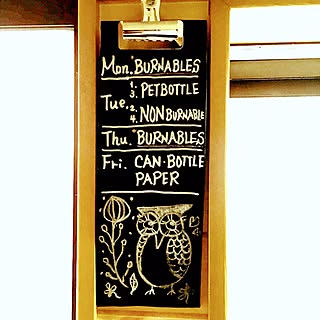 Mon. BURNABLES
1. 3. PETBOTTLE
Tue. 2. 4. NONBURNABLE
Thu. BURNABLES
Fri. CAN·BOTTLE
PAPER